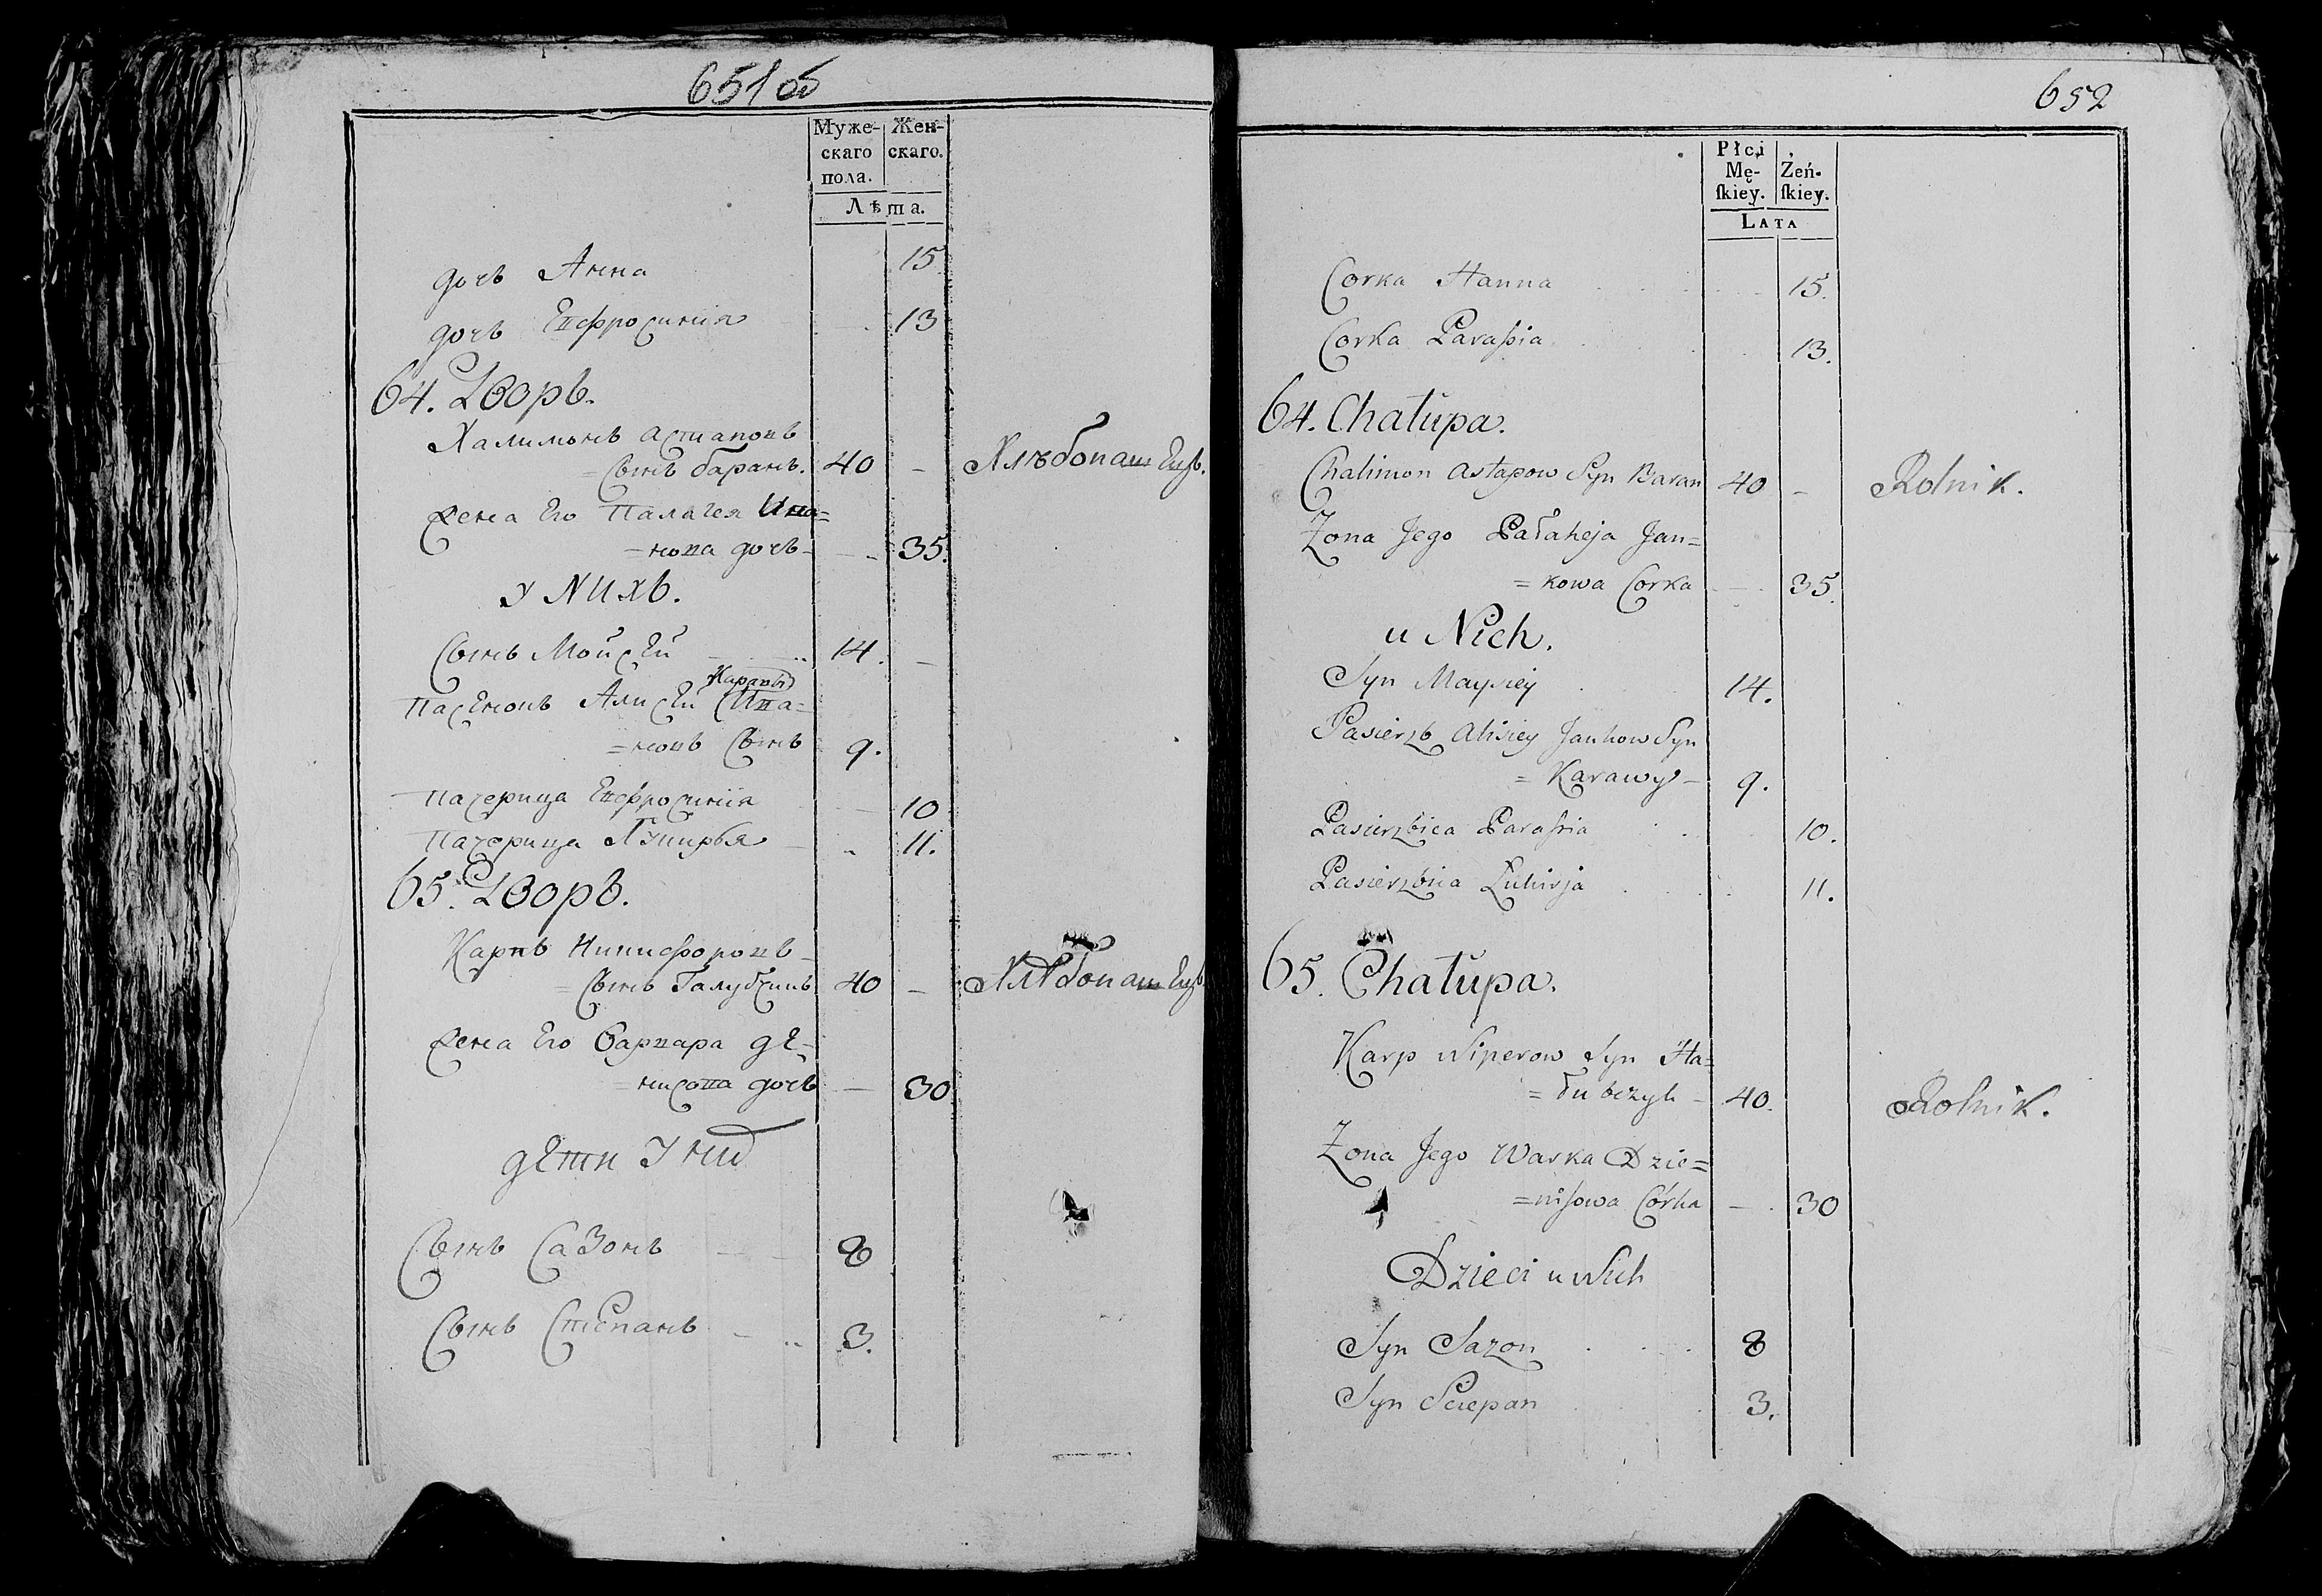 651об
Муже- Жен-
скаго скаго.
пола.
Лѣта.
дочь Анна 15
дочь Евфросинiя 13
64. Дворъ.
Халимонъ Астаповъ
=Сынъ баранъ. 40 - Хлѣбопашецъ.
Жена Его Палагея Ива=
=нова дочь- 35.
У Нихъ.
Сынъ Мойсей 14. -
Каравы
Пасенокъ Алисей Ива=
=новъ Сынъ 9.
Пачерица Евфросинiя 10
Пачерица Лукирья 11.
65. Дворъ.
Карпъ Никифоровъ
=Сынъ Галубчикъ 40 - Хлѣбопашецъ
Жена Его Варвара дE=
=нисова дочь - 30
дEти У них
Сынъ Сазонъ 8
Сынъ Степанъ 3.
652
Płci
Mę- Żeń-
ſkiey. ſkiey.
LATA
Corka Hanna 15.
Corka Paraſsia 13.
64. Chałupa.
Chalimon Astapow Syn Baran 40 - Rolnik.
Zona Jego Pałaheja Jan=
=kowa Corka 35.
u Nich.
Syn Maysiey 14.
Pasierzb Alisiey Jankow Syn
=Karawy- 9.
Pasierzbica Paraſsia 10.
Pasierzbica Łukirja 11.
65. Chałupa.
Karp Niperow Syn Ha=
=łubczyk - 40. Rolnik.
Zona Jego Warka Dzie=
=niſowa Córka - 30
Dzieci u Nich
Syn Sazon 8
Syn Sciepan 3.